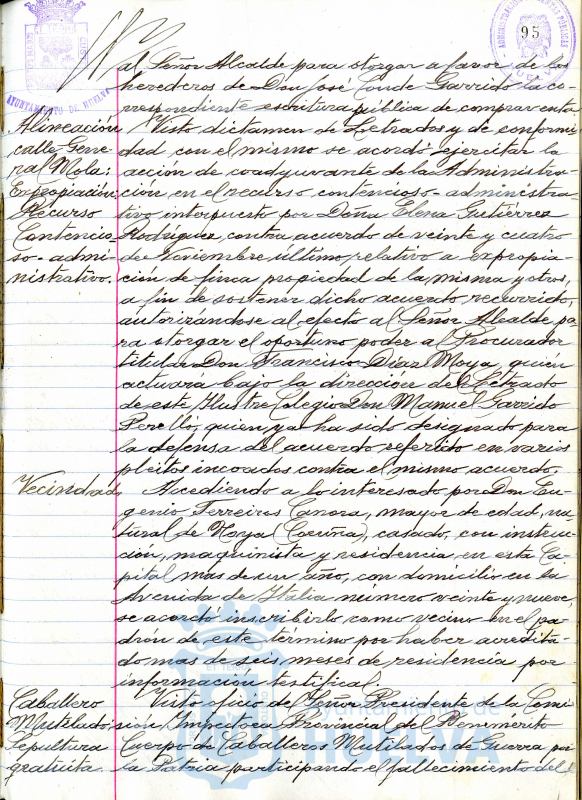 95
AYUNTAMIENTO DE HUELVA
al Señor Alcalde para otorgar a favor de los
herederos de Don José Conde Garrido la co-
rrespondiente escritura pública de compraventa.
Alineación
calle Gene-
ral Mola:
Expropiación:
Recurso
Contencio-
so-admi-
nistrativo.
Visto dictamen de Letrados y de conformi-
dad con el mismo se acordó ejercitar la
acción de coadyuvante de la Administra-
ción en el recurso contencioso-administra-
tivo interpuesto por Doña Elena Gutiérrez
Rodríguez, contra acuerdo de veinte y cuatro
de Noviembre último, relativo a expropia-
ción de finca propiedad de la misma y otros,
a fin de sostener dicho acuerdo recurrido,
autorizándose al efecto al Señor Alcalde pa-
ra otorgar el oportuno poder al Procurador
titular Don Francisco Díaz Moya, quién
actuará bajo la dirección del Letrado
de este Ilustre Colegio Don Manuel Garrido
Perelló, quien ya ha sido designado para
la defensa del acuerdo referido en varios
pleitos incoados contra el mismo acuerdo.
Vecindad
Accediendo a lo interesado por Don Eu-
genio Ferreiros Canora, mayor de edad, na-
tural de Noya (Coruña), casado, con instruc-
ción, maquinista y residencia en esta Ca-
pital mas de un año, con domicilio en la
Avenida de Italia número veinte y nueve,
se acordó inscribirlo como vecino en el pa-
drón de este término por haber acredita-
do mas de seis meses de residencia por
información testifical.
Caballero
Mutilado:
Sepultura
gratuita.
Visto oficio del Señor Presidente de la Comi-
sión Inspectora Provincial del Benemérito
Cuerpo de Caballeros Mutilados de Guerra por
la Patria participando el fallecimiento del
Ayuntamiento de
HUELVA